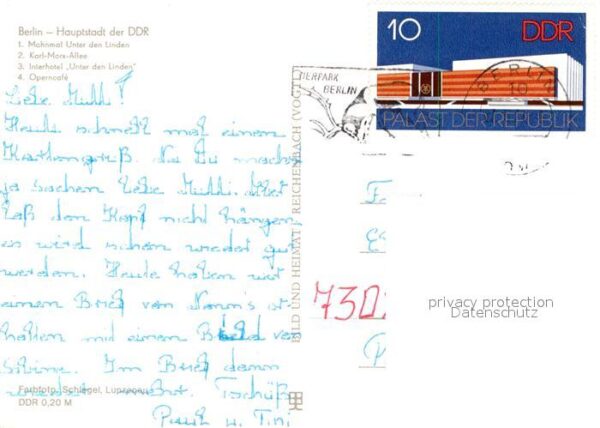 Berlin – Hauptstadt der DDR
1. Mahnmal Unter den Linden
2. Karl-Marx-Allee
3. Interhotel „Unter den Linden"
4. Operncafé
Liebe Mutti!
Heute schnell mal einen
Kartengruß. Na Du machst
ja Sachen liebe Mutti. Aber
laß den Kopf nicht hängen
es wird schon wieder gut
werden. Heute haben wir
einen Brief von
halten mit einen Bild von
Im Brief dann
Tschüß
Paul u. Tini
Farbfoto: Schlegel, Luppenau
DDR 0,20 M
BILD UND HEIMAT REICHENBACH (VOGTL)
TIERPARK
BERLIN
BERLIN
10
10 DDR
PALAST DER REPUBLIK
730
privacy protection
Datenschutz